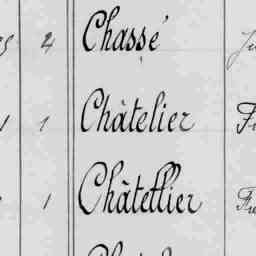 2 Chassé
1 1 Châtelier
1 Châtellier